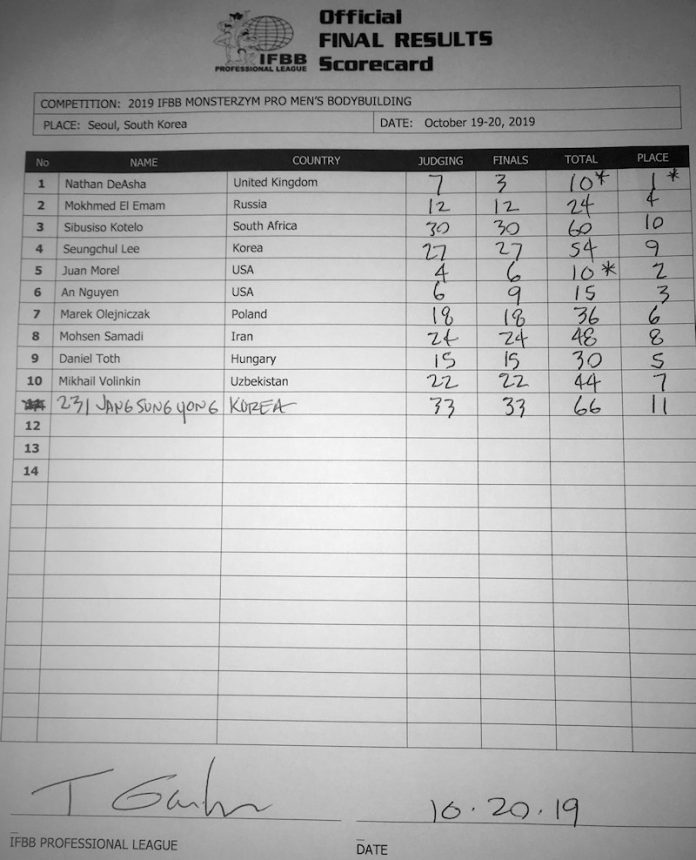 IFBB
PROFESSIONAL LEAGUE
Official
FINAL RESULTS
Scorecard
COMPETITION: 2019 IFBB MONSTERZYM PRO MEN'S BODYBUILDING
PLACE: Seoul, South Korea DATE: October 19-20, 2019
No NAME COUNTRY JUDGING FINALS TOTAL PLACE
1 Nathan DeAsha United Kingdom 7 3 10* 1*
2 Mokhmed El Emam Russia 12 12 24 4
3 Sibusiso Kotelo South Africa 30 30 60 10
4 Seungchul Lee Korea 27 27 54 9
5 Juan Morel USA 4 6 10* 2
6 An Nguyen USA 6 9 15 3
7 Marek Olejniczak Poland 18 18 36 6
8 Mohsen Samadi Iran 24 24 48 8
9 Daniel Toth Hungary 15 15 30 5
10 Mikhail Volinkin Uzbekistan 22 22 44 7
231 JANGSUNGYONG KOREA 33 33 66 11
12
13
14
10.20.19
IFBB PROFESSIONAL LEAGUE DATE